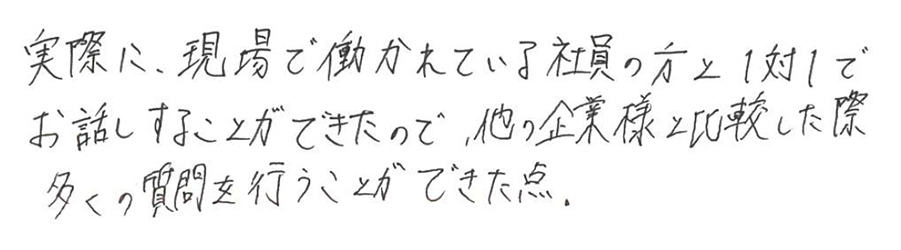 実際に、現場で働かれている社員の方と1対1で
お話しすることができたので、他の企業様と比較した際
多くの質問を行うことができた点.